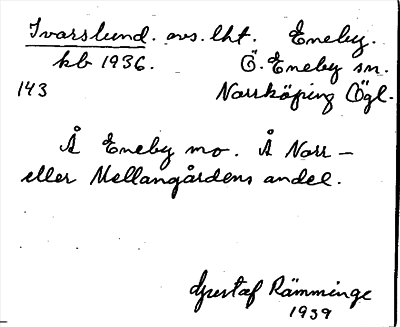 Ivarslund. avs. lht. Eneby.
kb 1936. Ö. Eneby sn.
143 Norrköping Ögl.
Å Eneby mo. Å Norr -
eller Mellangårdens andel.
Gustaf Rämminge
1939